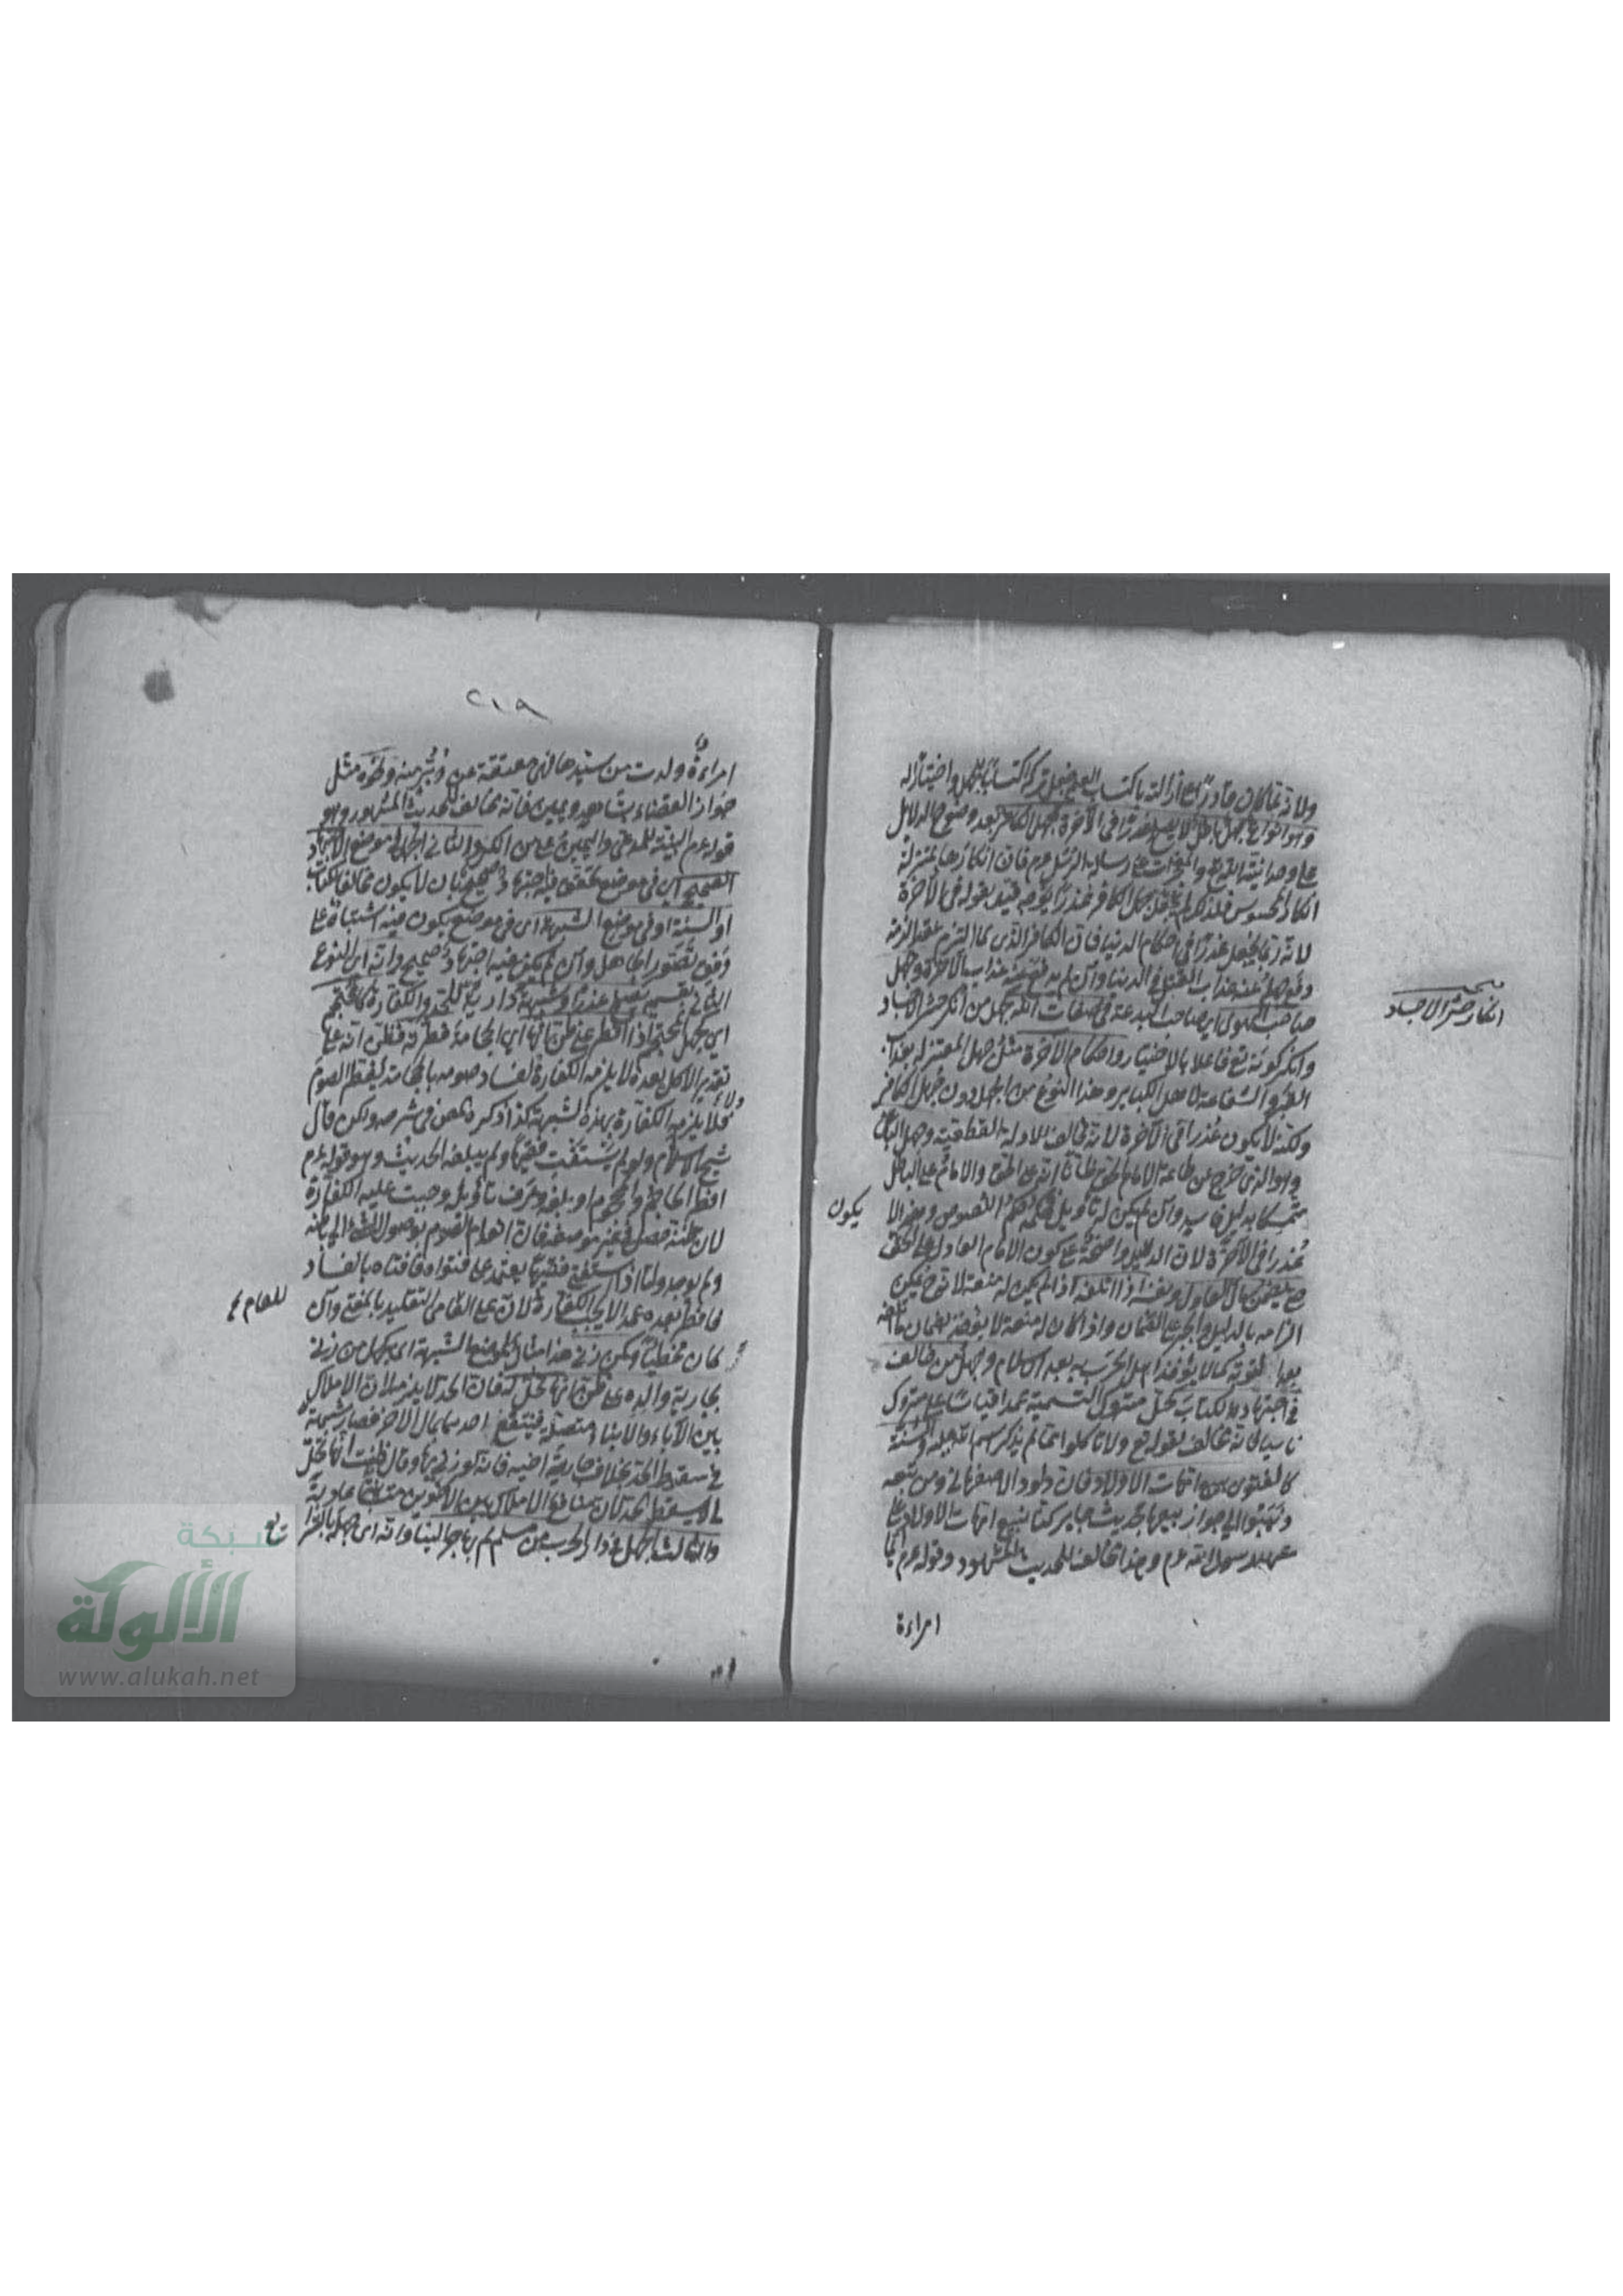 ولانه لما كان قادرا على ازالته باكتساب العلم جعل تركه اكتسابا للجهل واختيارا له
وهو انواع جهل باطل لا يصلح عذرا في الآخرة كجهل الكافر بعد وضوح الدلايل
على وحدانية الله تع والمعجزات على رسالة الرسل عم فان انكارها بمنزلة
انكار المحسوس فلذلك لم يجعل جهل الكافر عذرا بوجه قيد بقوله في الآخرة
لانه ربما يجعل عذرا في احكام الدنيا فان الكافر الذمي لما التزم عقد الذمة
دفع جهله عنه عذاب القتل في الدنيا وان لم يدفع عنه عذاب الآخرة وجهل
صاحب الهوى اي صاحب البدعة في صفات الله كجهل من انكر حشر الاجساد
وانكر كونه تع فاعلا بالاختيار واحكام الآخرة مثل جهل المعتزلة بعذاب
القبر والشفاعة لاهل الكباير وهذا النوع من الجهل دون جهل الكافر
ولكنه لا يكون عذرا في الآخرة لانه مخالف للادلة القطعية وجهل الباغي
وهو الذي خرج عن طاعة الامام الحق ظانا انه على الحق والامام على الباطل
متمسكا بدليل فاسد وان لم يكن له تأويل فحكمه حكم اللصوص وهذا لا
عذرا في الآخرة لان الدلايل واضحة على كون الامام العادل على الحق
حتى يضمن مال العادل ونفسه اذا اتلفه اذا لم يكن له منعة لانه ح يمكن
الزامه بالدليل والجبر على الضمان واذا كان له منعة لا يؤخذ بضمان ما اتلفه
بعد التوبة كما لا يؤخذ اهل الحرب به بعد الاسلام وجهل من خالف
في اجتهاده الكتاب كحل متروك التسمية عمدا قياسا على متروك
ناسيا فانه مخالف لقوله تع ولا تأكلوا مما لم يذكر اسم الله عليه والسنة
كالفتوى ببيع امهات الاولاد فان داود الاصفهاني ومن تبعه
ذهبوا الى جواز بيعها بحديث جابر كنا نبيع امهات الاولاد على
عهد رسول الله عم وهذا مخالف للحديث المشهود وقوله عم ايما
امراءة
يكون
انكار حشر الاجساد
٢١٩
امراءة ولدت من سيدها فهي معتقة عن دبر منه ونحوه مثل
جواز القضاء بشاهد ويمين فانه مخالف للحديث المشهور وهو
قوله عم البينة للمدعي واليمين على من انكر والثاني الجهل في موضع الاجتهاد
الصحيح اي في موضع تحقق فيه اجتهاد صحيح بان لا يكون مخالفا للكتاب
او السنة او في موضع الشبهة اي في موضع يكون فيه اشتباه على
وفق تصور الجاهل وان لم يكن فيه اجتهاد صحيح وانه اي النوع
الثاني يصلح عذرا وشبهة دارية للحد والكفارة كالمحتجم
اي جهل المحتجم اذا افطر على ظن انها اي الحجامة فطرته فظن انه على
تقدير الاكل بعده لا يلزمه الكفارة لفساد صومه بالحجامة
فلا يلزمه الكفارة بهذه الشبهة كذا ذكر في شرحه ولكن قال
شيخ الاسلام ولو لم يستفت فقيها ولم يبلغه الحديث وهو قوله عم
افطر الحاجم والمحجوم او بلغه وعرف تأويله وجبت عليه الكفارة
لان ظنه حصل في غير موضعه فان انعدام الصوم بوصول الشيء الى باطنه
ولم يوجد واما اذا استفتى فقيها يعتمد على فتواه فافتاه بالفساد
فافطر بعده عمدا لا يجب الكفارة لان على العامي التقليد بالمفتي وان
كان مخطيا وكمن زنى هذا مثال لموضع الشبهة اي كجهل من زنى
بجارية والده على ظن انها تحل له فان الحد لا يلزمه لان الاملاك
بين الآباء والابناء متصلة فينتفع احدهما بمال الاخر فصار شبهة
في سقوط الحد بخلاف جارية اخيه فانه لو زنى بها وقال ظننت انها تحل
لي لا يسقط الحد لان منافع الاملاك بين الاخوين متباينة عادية
والثالث الجهل في دار الحرب من مسلم لم يهاجر الينا وانه اي جهله بالشرايع
للعام
شبكة
الألوكة
www.alukah.net